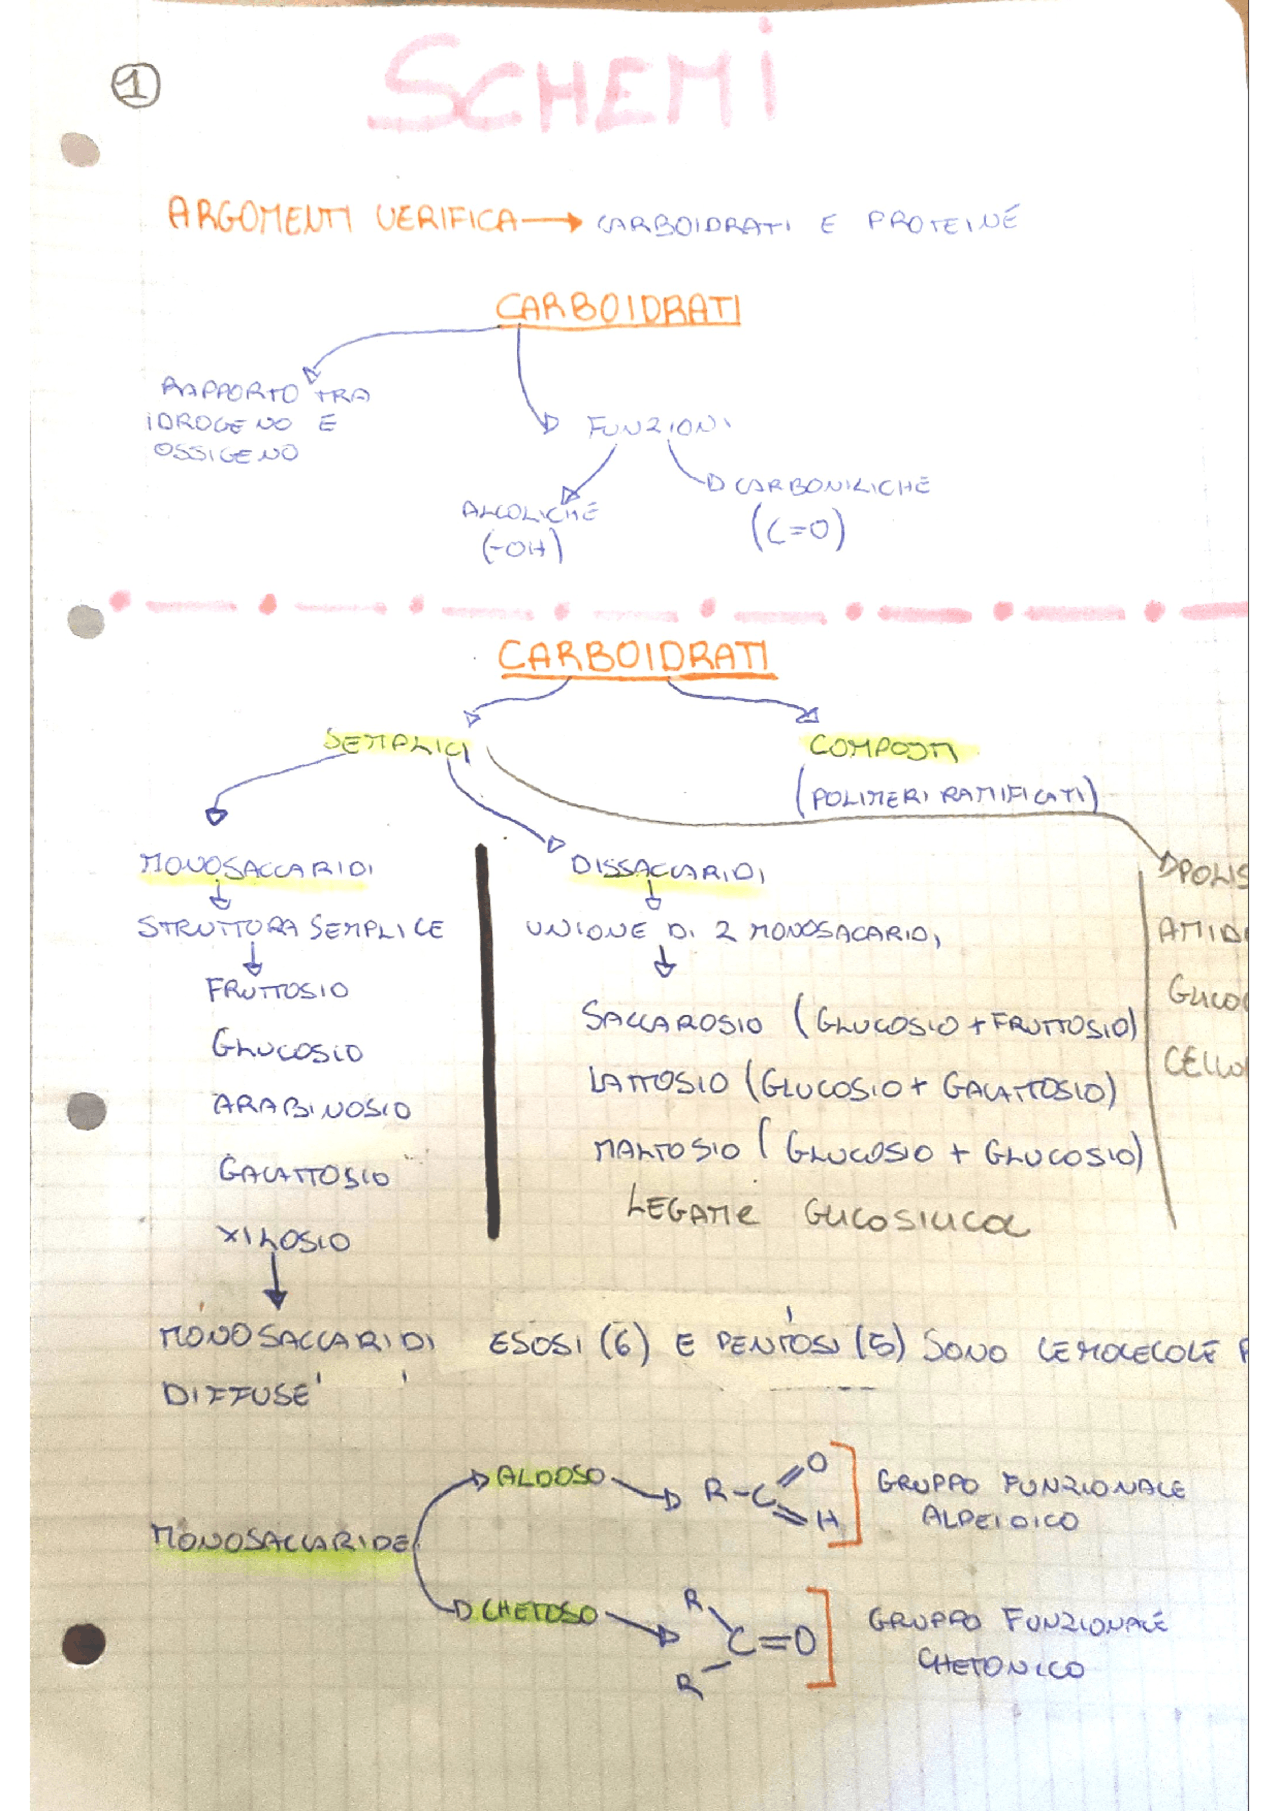 1
SCHEMi
ARGOMENTI VERIFICA → CARBOIDRATI E PROTEINE
CARBOIDRATI
RAPPORTO TRA
iDROGENO E
OSSIGENO
FUNZIONI
ALCOLICHE
(-OH)
CARBONILICHE
(C=O)
CARBOIDRATI
SEMPLICI
COMPOSTI
(POLIMERI RAMIFICATI)
MONOSACCARIDI
STRUTTURA SEMPLICE
FRUTTOSIO
GLUCOSIO
ARABINOSIO
GALATTOSIO
XILOSIO
DISSACCARIDI
UNIONE DI 2 MONOSACARIDI
SACCAROSIO (GLUCOSIO + FRUTTOSIO)
LATTOSIO (GLUCOSIO + GALATTOSIO)
MALTOSIO (GLUCOSIO + GLUCOSIO)
LEGAME GLICOSIDICO
POLIS
AMID
GLICO
CELLU
MONOSACCARIDI ESOSI (6) E PENTOSI (5) SONO LE MOLECOLE P
DIFFUSE
MONOSACCARIDE
ALDOSO
R-C
O
H
GRUPPO FUNZIONALE
ALDEIDICO
CHETOSO
R
C=O
R
GRUPPO FUNZIONALE
CHETONICO